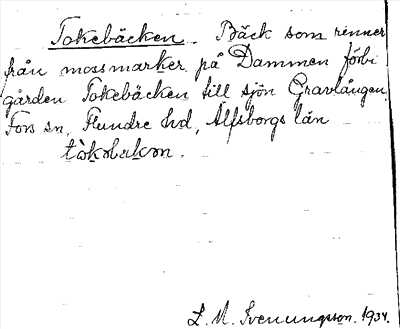 Tokebäcken. Bäck som rinner
från mossmarker på Dammen förbi
gården Tokebäcken till sjön Gravlången.
Fors sn, Flundre hd, Älfsborgs län
tò̀kəbækən.
L. M. Svenungsson. 1934.